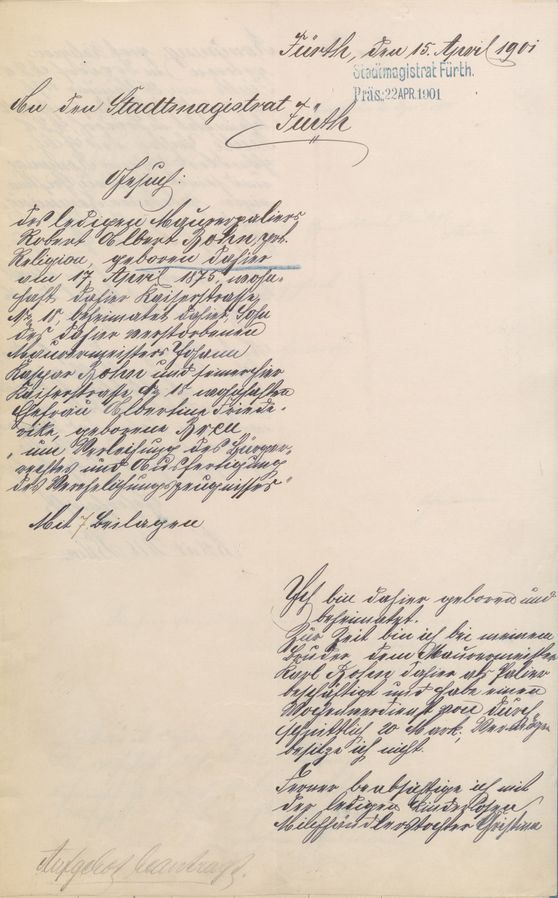 Fürth, den 15. April 1901
Stadtmagistrat Fürth.
Präs. 22 APR. 1901
An den Stadtmagistrat
Fürth
Gesuch:
des ledigen Maurerpaliers
Robert Albert Bohn, prt.
Religion, geboren dahier
am 17 April 1875, wohn-
haft dahier Kaiserstraße
No 15 beheimatet dahier, Sohn
des dahier verstorbenen
Maurermeisters Johann
Kaspar Bohn und seiner hier
Kaiserstraße No 15 wohnhaften
Ehefrau Albertine Friede-
rike, geborene
„um Verleihung des Bürger-
rechtes und Ausfertigung
des Verehelichungszeugnisses"
Mit 7 Beilagen
Ich bin dahier geboren und
beheimatet.
Zur Zeit bin ich bei meinem
Bruder dem Maurermeister
Karl Bohn dahier als Palier
beschäftigt und habe einen
Wochenverdienst von durch
schnittlich 20 Mark, Vermögen
besitze ich nicht.
Ferner beabsichtige ich mit
der ledigen kinderlosen
Milchhändlerstochter Christina
Aufgebot beantragt.